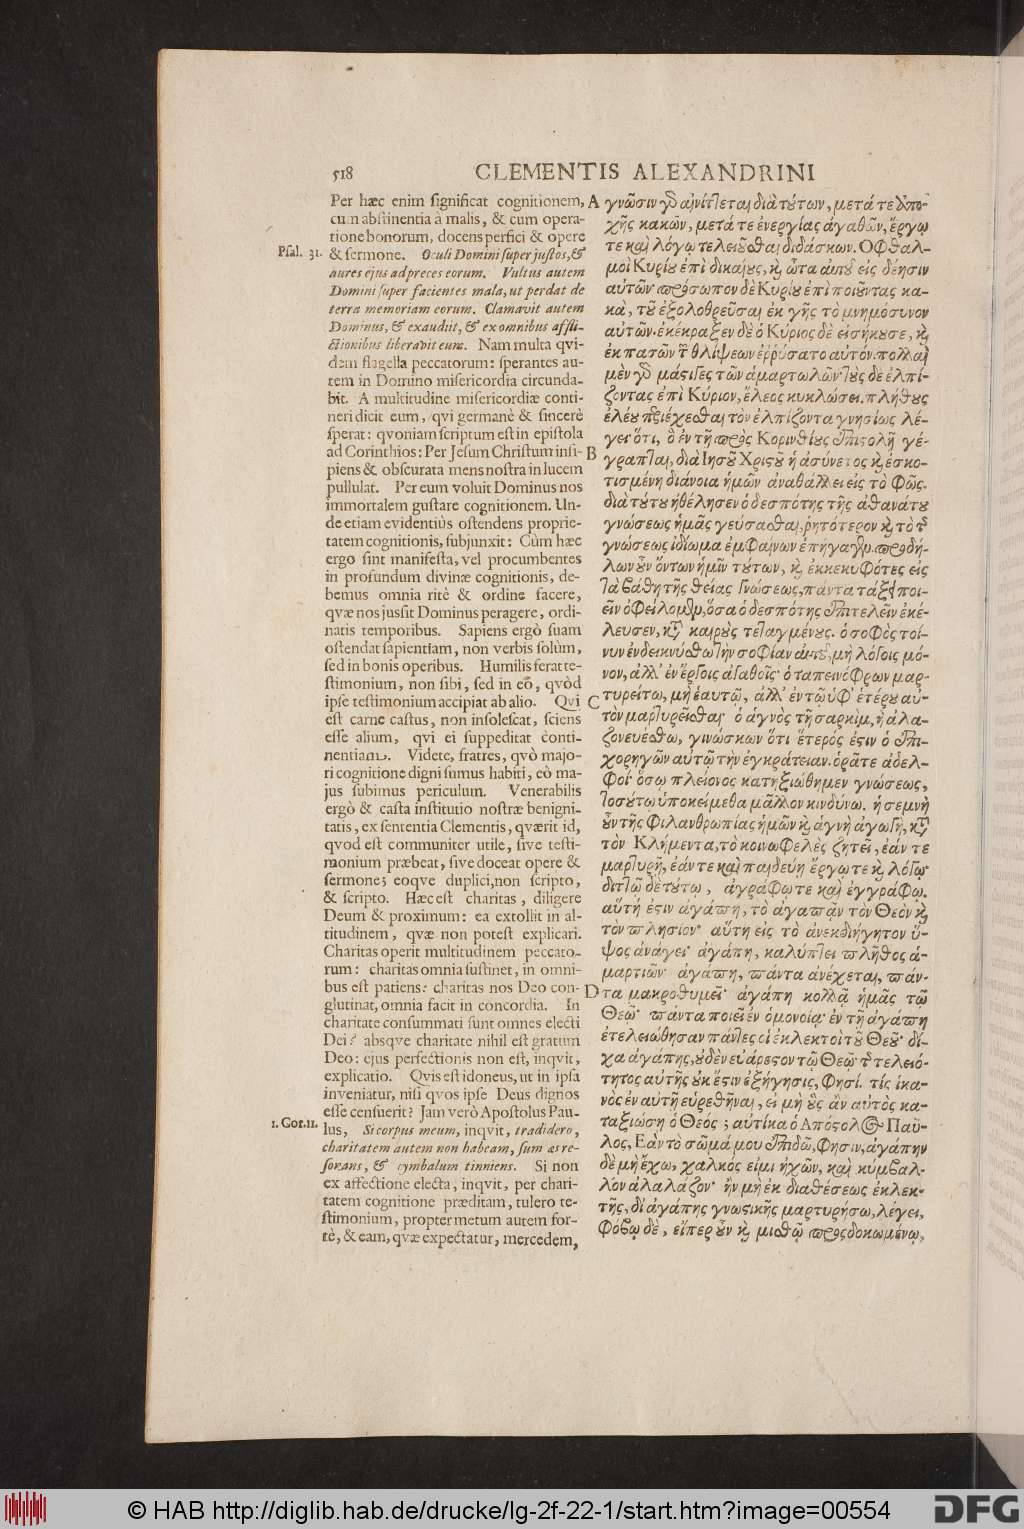 518
CLEMENTIS ALEXANDRINI
Per hæc enim ſignificat cognitionem,
cum abſtinentia à malis, & cum opera-
tione bonorum, docens perfici & opere
Pſal. 31.
& ſermone. Oculi Domini ſuper juſtos, &
aures ejus ad preces eorum. Vultus autem
Domini ſuper facientes mala, ut perdat de
terra memoriam eorum. Clamavit autem
Dominus, & exaudiit, & ex omnibus affli-
ctionibus liberavit eum. Nam multa qvi-
dem flagella peccatorum: ſperantes au-
tem in Domino miſericordia circunda-
bit. A multitudine miſericordiæ conti-
neri dicit eum, qvi germanè & ſincerè
ſperat: qvoniam ſcriptum eſt in epiſtola
ad Corinthios: Per Jeſum Chriſtum inſi-
piens & obſcurata mens noſtra in lucem
pullulat. Per eum voluit Dominus nos
immortalem guſtare cognitionem. Un-
de etiam evidentiùs oſtendens proprie-
tatem cognitionis, ſubjunxit: Cùm hæc
ergo ſint manifeſta, vel procumbentes
in profundum divinæ cognitionis, de-
bemus omnia ritè & ordine facere,
qvæ nos juſſit Dominus peragere, ordi-
natis temporibus. Sapiens ergò ſuam
oſtendat ſapientiam, non verbis ſolùm,
ſed in bonis operibus. Humilis ferat te-
ſtimonium, non ſibi, ſed in eo, qvòd
ipſe teſtimonium accipiat ab alio. Qvi
eſt carne caſtus, non inſoleſcat, ſciens
eſſe alium, qvi ei ſuppeditat conti-
nentiam. Videte, fratres, qvò majo-
ri cognitione digni ſumus habiti, eò ma-
jus ſubimus periculum. Venerabilis
ergò & caſta inſtitutio noſtræ benigni-
tatis, ex ſententia Clementis, qværit id,
qvod eſt communiter utile, ſive teſti-
monium præbeat, ſive doceat opere &
ſermone; eoqve duplici, non ſcripto,
& ſcripto. Hæc eſt charitas, diligere
Deum & proximum: ea extollit in al-
titudinem, qvæ non poteſt explicari.
Charitas operit multitudinem peccato-
rum: charitas omnia ſuſtinet, in omni-
bus eſt patiens: charitas nos Deo con-
glutinat, omnia facit in concordia. In
charitate conſummati ſunt omnes electi
Dei: absqve charitate nihil eſt gratum
Deo: ejus perfectionis non eſt, inqvit,
explicatio. Qvis eſt idoneus, ut in ipſa
inveniatur, niſi qvos ipſe Deus dignos
eſſe cenſuerit? Jam verò Apoſtolus Pau-
1. Cor. 11.
lus, Si corpus meum, inqvit, tradidero,
charitatem autem non habeam, ſum æs re-
ſonans, & cymbalum tinniens. Si non
ex affectione electa, inqvit, per chari-
tatem cognitione præditam, tulero te-
ſtimonium, propter metum autem for-
tè, & eam, qvæ expectatur, mercedem,
A
B
C
D
γνῶσιν γὸ αἰνίττεται διὰ τούτων, μετά τε ἀπο-
χῆς κακῶν, μετά τε ἐνεργίας ἀγαθῶν, ἔργῳ
τε καὶ λόγῳ τελειοῦσθαι διδάσκων. Οφθαλ-
μοὶ Κυρίου ἐπὶ δικαίους, καὶ ὦτα αὐτοῦ εἰς δέησιν
αὐτῶν· πρόσωπον δὲ Κυρίου ἐπὶ ποιοῦντας κα-
κὰ, τοῦ ἐξολοθρεῦσαι ἐκ γῆς τὸ μνημόσυνον
αὐτῶν. ἐκέκραξεν δὲ ὁ Κύριος δὲ εἰσήκουσε, καὶ
ἐκ πασῶν τῶν θλίψεων ἐῤῥύσατο αὐτόν. πολλαὶ
μὲν γὸ μάστιγες τῶν ἁμαρτωλῶν· τοὺς δὲ ἐλπί-
ζοντας ἐπὶ Κύριον, ἔλεος κυκλώσει. πλήθους
ἐλέου περιέχεσθαι τὸν ἐλπίζοντα γνησίως λέ-
γει· ὅτι, ὃ ἐν τῇ πρὸς Κορινθίους ἐπιστολῇ γέ-
γραπται, διὰ Ιησοῦ Χριστοῦ ἡ ἀσύνετος καὶ ἐσκο-
τισμένη διάνοια ἡμῶν ἀναθάλλει εἰς τὸ φῶς.
διὰ τούτου ἠθέλησεν ὁ δεσπότης τῆς ἀθανάτου
γνώσεως ἡμᾶς γεύσασθαι, ῥητότερον καὶ τὸ τῆς
γνώσεως ἰδίωμα ἐμφαίνων ἐπήγαγεν. προδή-
λων οὖν ὄντων ἡμῖν τούτων, καὶ ἐκκεκυφότες εἰς
τὰ βάθη τῆς θείας γνώσεως, πάντα τάξει ποι-
εῖν ὀφείλομεν, ὅσα ὁ δεσπότης ἐπιτελεῖν ἐκέ-
λευσεν, κατὰ καιροὺς τεταγμένους. ὁ σοφὸς τοί-
νυν ἐνδεικνύσθω τὴν σοφίαν αὐτοῦ, μὴ λόγοις μό-
νον, ἀλλ' ἐν ἔργοις ἀγαθοῖς· ὁ ταπεινόφρων μαρ-
τυρείτω, μὴ ἑαυτῷ, ἀλλ' ἐν τῷ ὑφ' ἑτέρου αὐ-
τὸν μαρτυρεῖσθαι· ὁ ἁγνὸς τῇ σαρκὶ μὴ ἀλα-
ζονευέσθω, γινώσκων ὅτι ἕτερός ἐστιν ὁ ἐπι-
χορηγῶν αὐτῷ τὴν ἐγκράτειαν. ὁρᾶτε ἀδελ-
φοί· ὅσῳ πλείονος κατηξιώθημεν γνώσεως,
τοσούτῳ ὑποκείμεθα μᾶλλον κινδύνῳ. ἡ σεμνὴ
οὖν τῆς φιλανθρωπίας ἡμῶν καὶ ἁγνὴ ἀγωγὴ, κατὰ
τὸν Κλήμεντα, τὸ κοινωφελὲς ζητεῖ, ἐάν τε
μαρτυρῇ, ἐάν τε καὶ παιδεύῃ ἔργῳ τε καὶ λόγῳ·
διττῷ δὲ τούτῳ, ἀγράφῳ τε καὶ ἐγγράφῳ.
αὕτη ἐστιν ἀγάπη, τὸ ἀγαπᾷν τὸν Θεὸν καὶ
τὸν πλησίον· αὕτη εἰς τὸ ἀνεκδιήγητον ὕ-
ψος ἀνάγει· ἀγάπη, καλύπτει πλῆθος ἁ-
μαρτιῶν· ἀγάπη, πάντα ἀνέχεται, πάν-
τα μακροθυμεῖ· ἀγάπη κολλᾷ ἡμᾶς τῷ
Θεῷ· πάντα ποιεῖ ἐν ὁμονοίᾳ· ἐν τῇ ἀγάπῃ
ἐτελειώθησαν πάντες οἱ ἐκλεκτοὶ τοῦ Θεοῦ· δί-
χα ἀγάπης, οὐδὲν εὐάρεστον τῷ Θεῷ· τῆς τελειό-
τητος αὐτῆς οὐκ ἔστιν ἐξήγησις, φησί. τίς ἱκα-
νὸς ἐν αὐτῇ εὑρεθῆναι, εἰ μὴ οὓς ἂν αὐτὸς κα-
ταξιώσῃ ὁ Θεός; αὐτίκα ὁ Απόστολος Παῦ-
λος, Εὰν τὸ σῶμά μου ἐπιδῶ, φησιν, ἀγάπην
δὲ μὴ ἔχω, χαλκός εἰμι ἠχῶν, καὶ κύμβαλ-
λον ἀλαλάζον· ἢν μὴ ἐκ διαθέσεως ἐκλεκ-
τῆς, δι' ἀγάπης γνωστικῆς μαρτυρήσω, λέγει,
φόβῳ δὲ, εἴπερ οὖν καὶ μισθῷ προσδοκωμένῳ,
© HAB http://diglib.hab.de/drucke/lg-2f-22-1/start.htm?image=00554
DFG